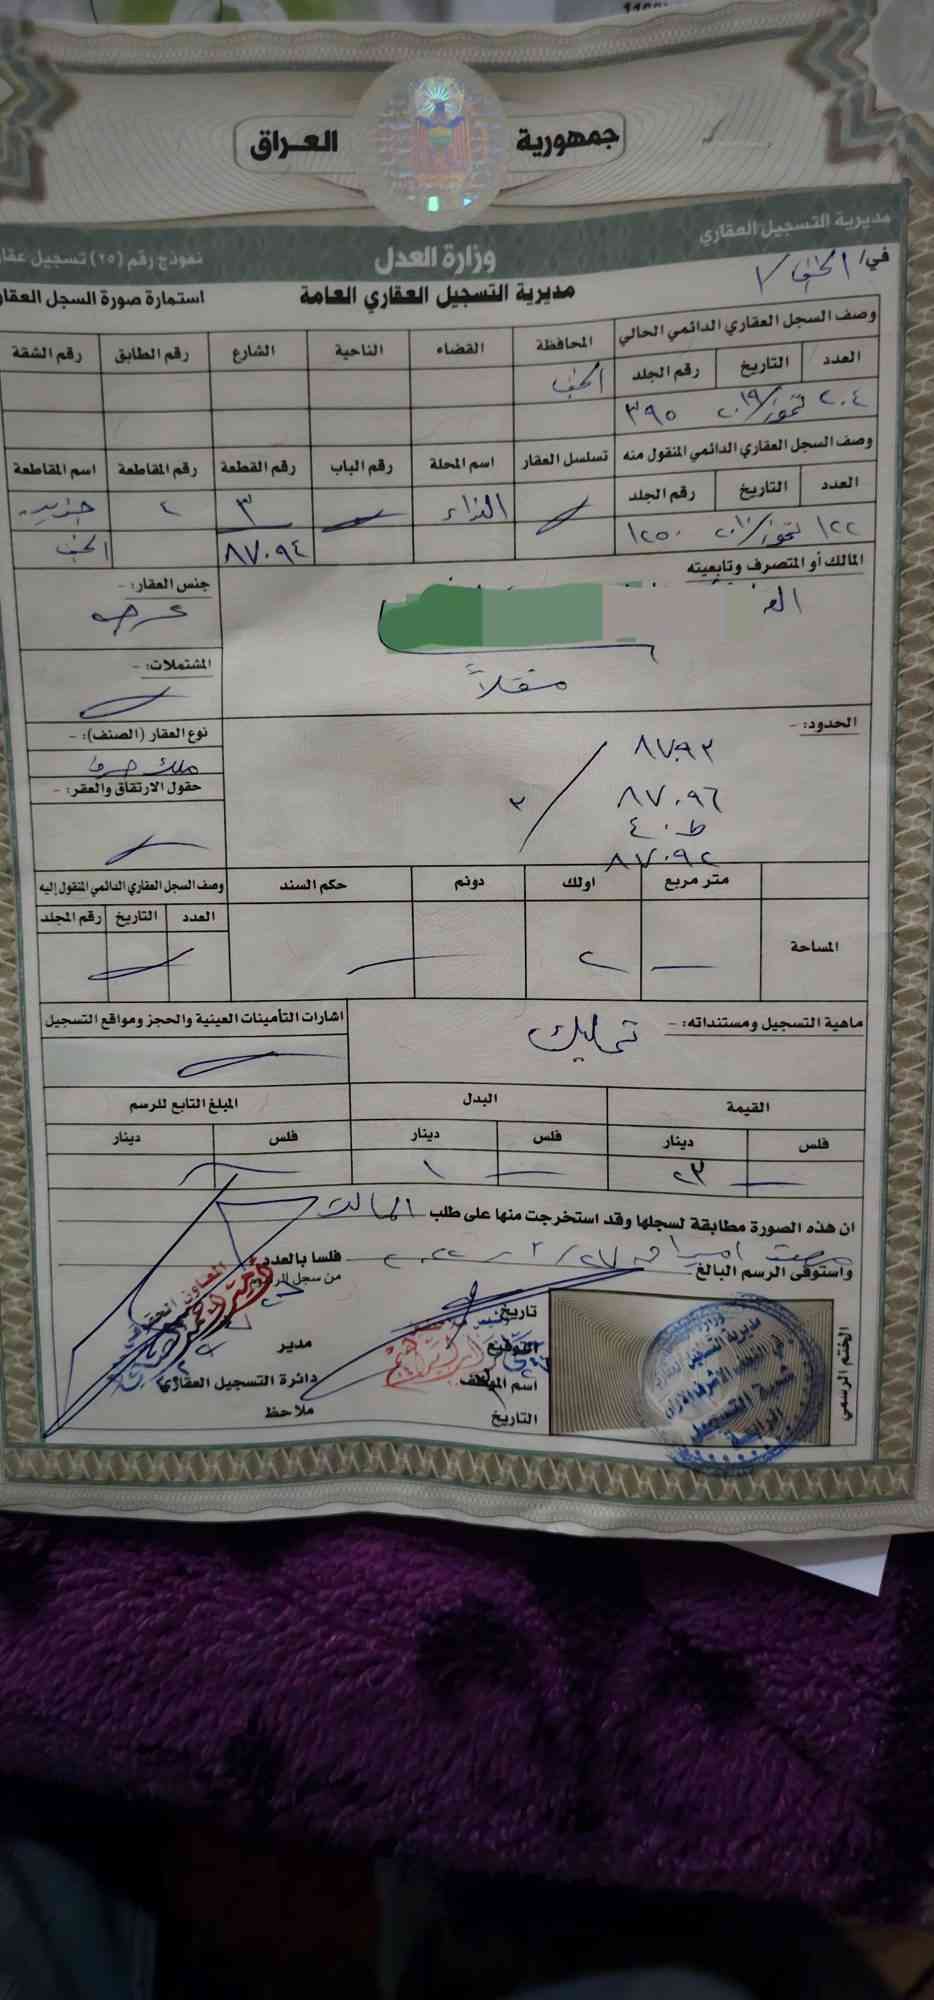 جمهورية العراق
مديرية التسجيل العقاري
وزارة العدل
نموذج رقم (٢٥) تسجيل عقا
في/ النجف/١
مديرية التسجيل العقاري العامة
استمارة صورة السجل العقار
وصف السجل العقاري الدائمي الحالي
المحافظة القضاء الناحية الشارع رقم الطابق رقم الشقة
العدد التاريخ رقم الجلد
النجف
٢٠٤ تموز/٢٠١٩ ٣٩٥
وصف السجل العقاري الدائمي المنقول منه
تسلسل العقار اسم المحلة رقم الباب رقم القطعة رقم المقاطعة اسم المقاطعة
العدد التاريخ رقم الجلد
النداء ٣ ٤
١٢٢ تموز/٢٠١٠ ١٢٥٠
٨٧٠٩٤ النجف
المالك أو المتصرف وتابعيته
جنس العقار: -
عرصه
المشتملات: -
الحدود: -
نوع العقار (الصنف): -
ملك صرف
حقول الارتقاق والعقر: -
٨٧٠٩٣
٨٧٠٩٦
ط٤٠
٨٧٠٩٢
٣
المساحة
متر مربع اولك دونم حكم السند
٢
وصف السجل العقاري الدائمي المنقول إليه
العدد التاريخ رقم المجلد
ماهية التسجيل ومستنداته: -
تمليك
اشارات التأمينات العينية والحجز ومواقع التسجيل
القيمة البدل المبلغ التابع للرسم
فلس دينار فلس دينار فلس دينار
٢٣ ١
ان هذه الصورة مطابقة لسجلها وقد استخرجت منها على طلب المالك
واستوفى الرسم البالغ فلسا بالعدد
من سجل الرسوم
تاريخ
التوقيع
اسم الموظف
التاريخ
مدير
دائرة التسجيل العقاري
ملاحظ
الختم الرسمي